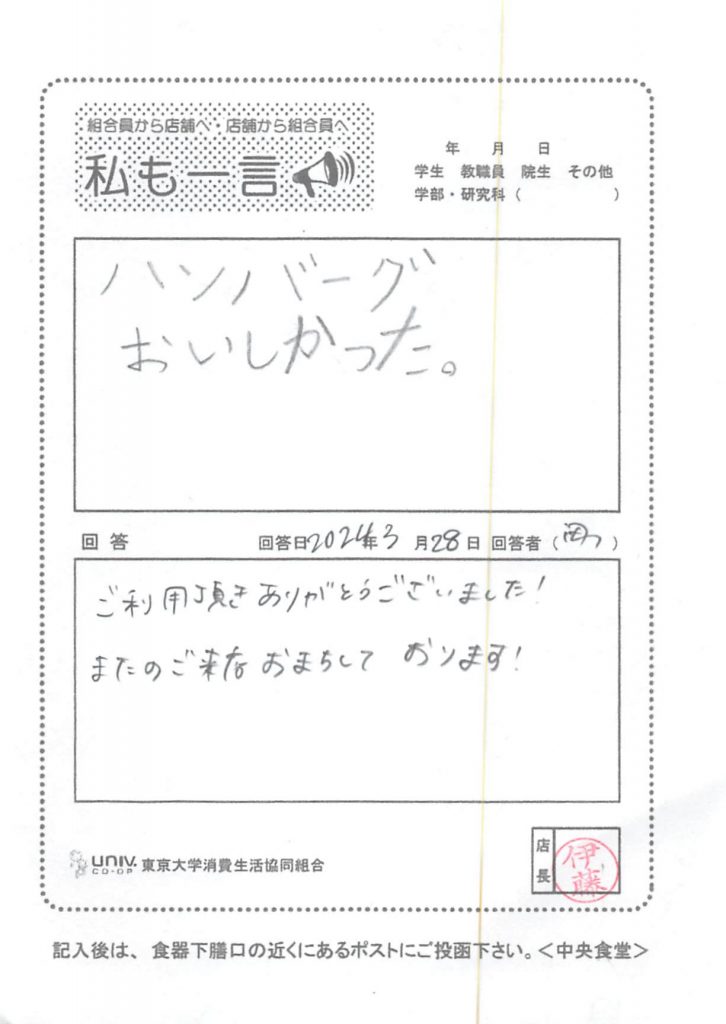 組合員から店舗へ・店舗から組合員へ
私も一言
年 月 日
学生 教職員 院生 その他
学部・研究科（ ）
ハンバーグ
おいしかった。
回答 回答日2024年3月28日 回答者（ ）
ご利用頂きありがとうございました！
またのご来店おまちして おります！
UNIV. CO-OP 東京大学消費生活協同組合
店長 伊藤
記入後は、食器下膳口の近くにあるポストにご投函下さい。＜中央食堂＞